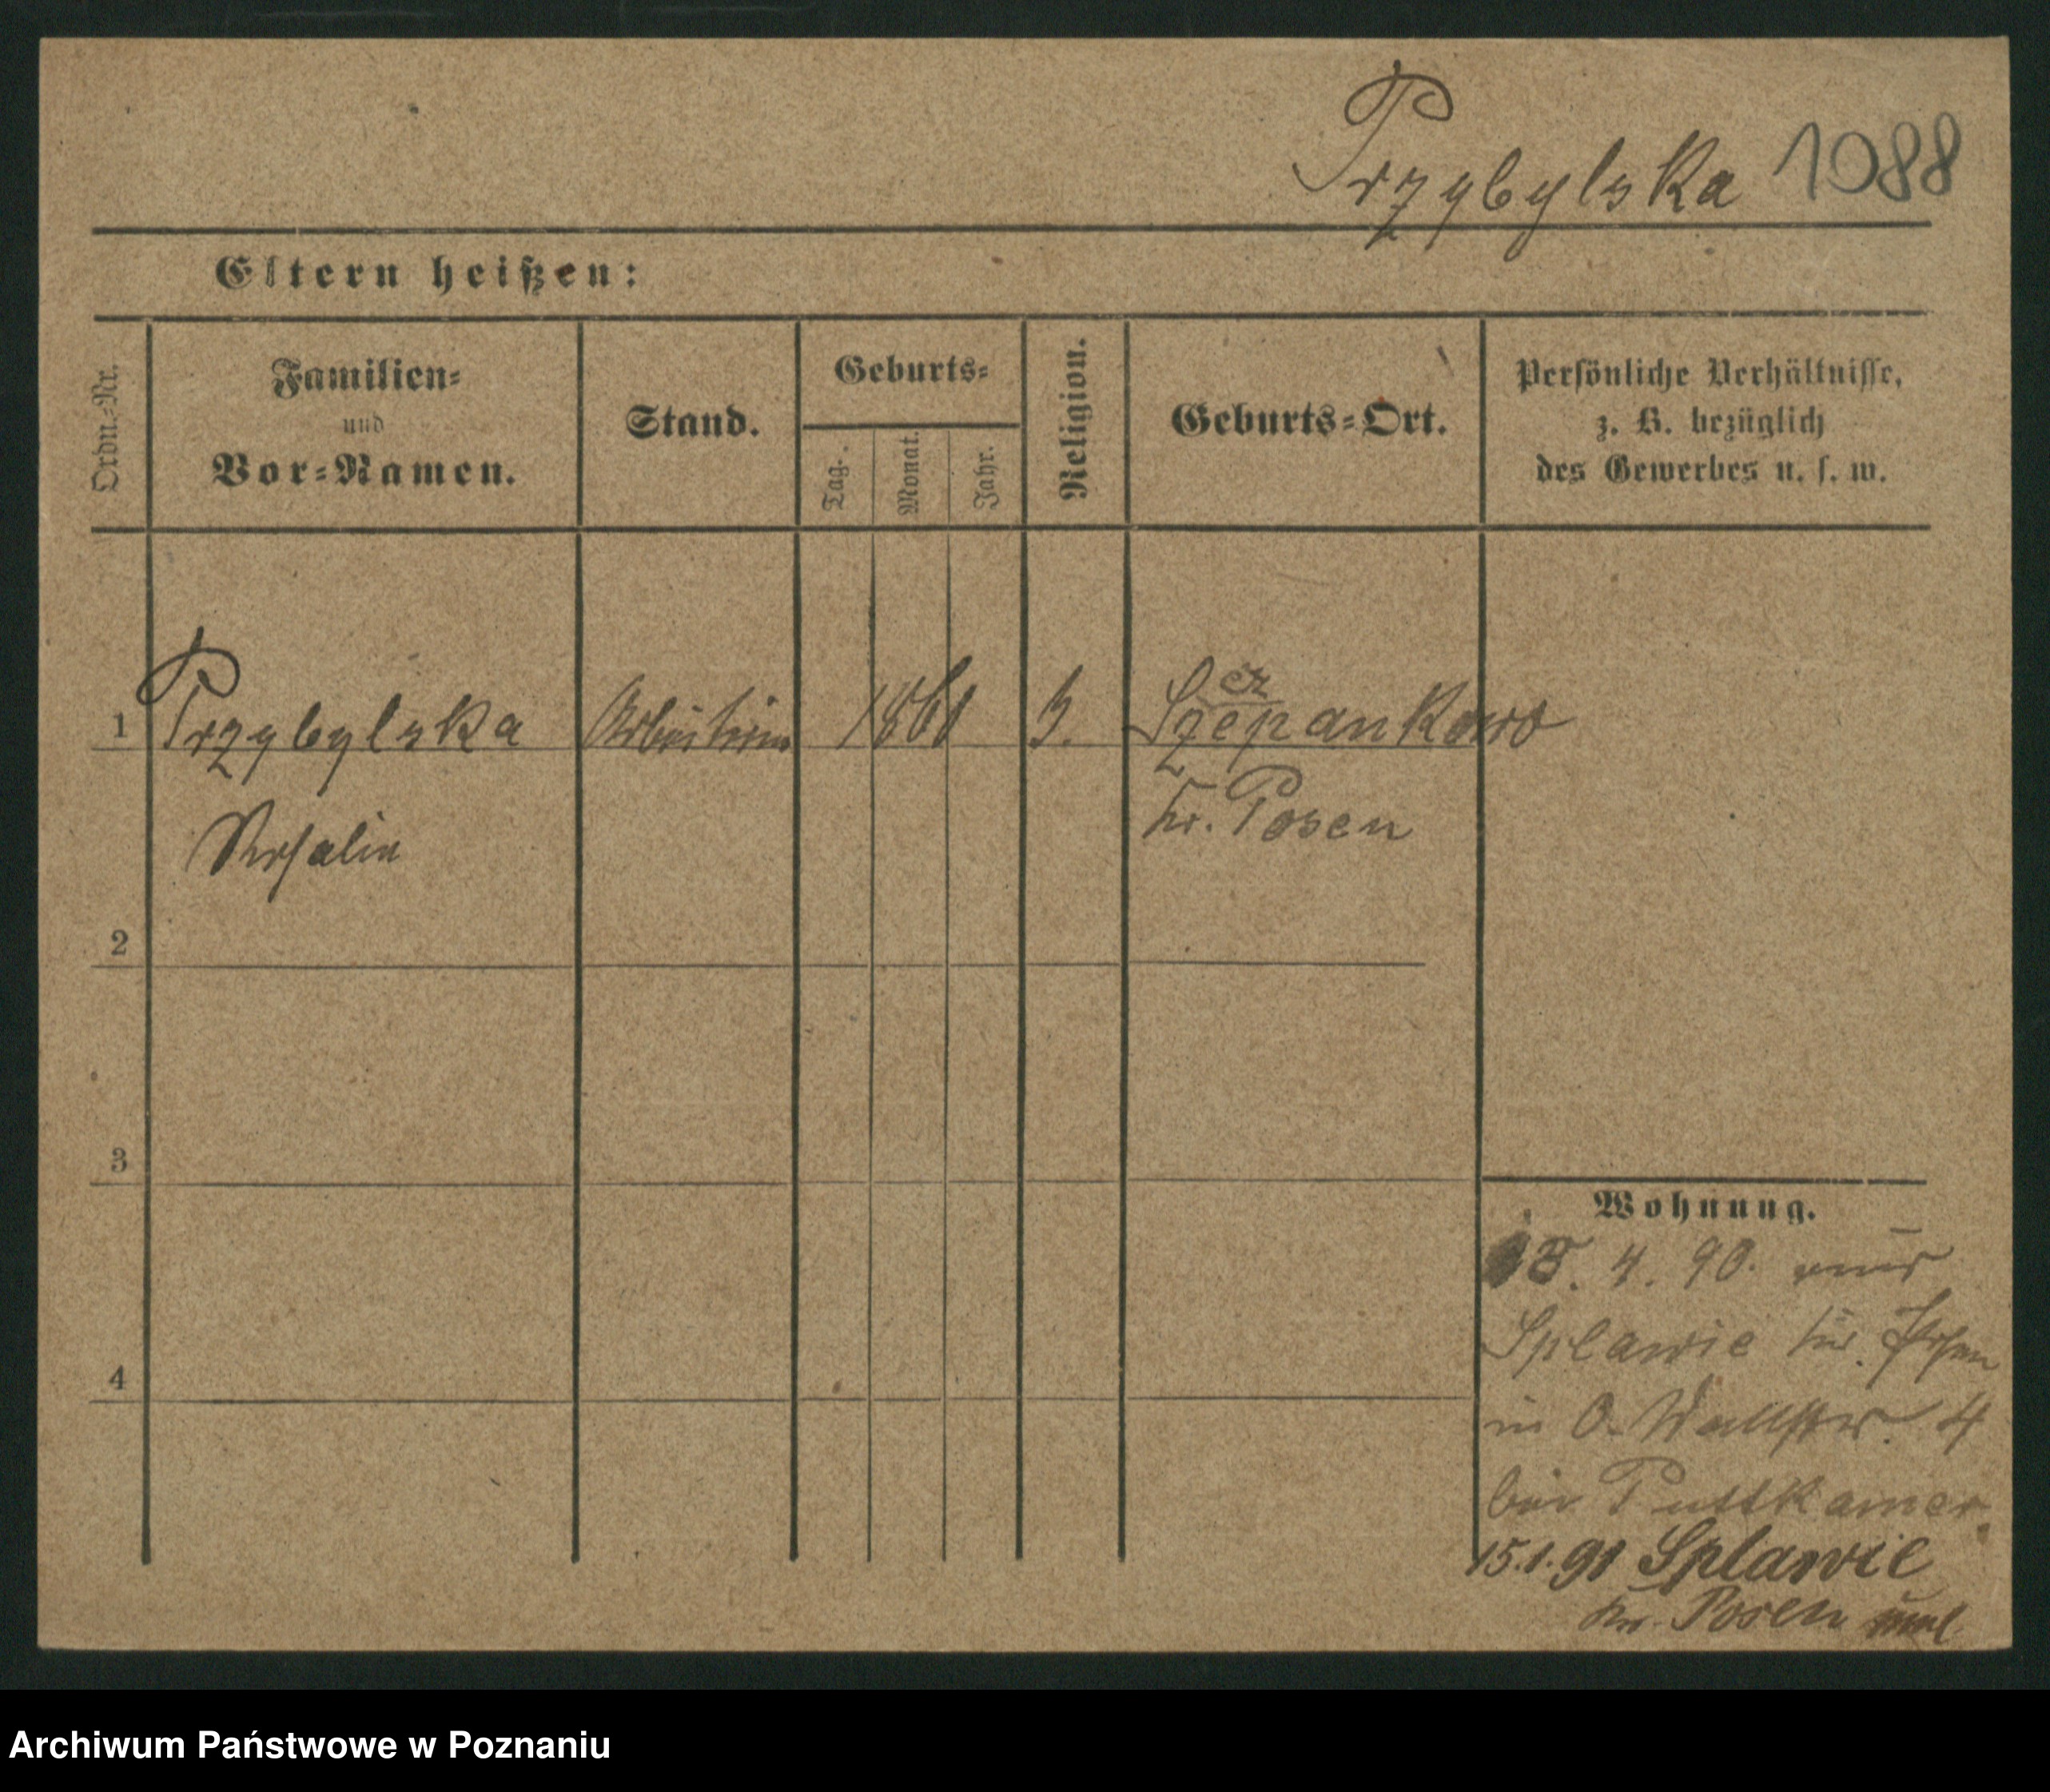 Przybylska 1088
Eltern heißen:
Ordn.-Nr.
Familien-
und
Vor-Namen.
Stand.
Geburts-
Tag.
Monat.
Jahr.
Religion.
Geburts-Ort.
Persönliche Verhältnisse,
z. B. bezüglich
des Gewerbes u. s. w.
1 Przybylska Arbeiterin 1861 Szczepankowo
Kr. Posen
Rosalie
2
3
4
Wohnung.
18. 4. 90.
Splawie Kr. Posen
in O. Wallstr. 4
bei Puttkamer.
15.1.91 Splawie
Kr. Posen
Archiwum Państwowe w Poznaniu